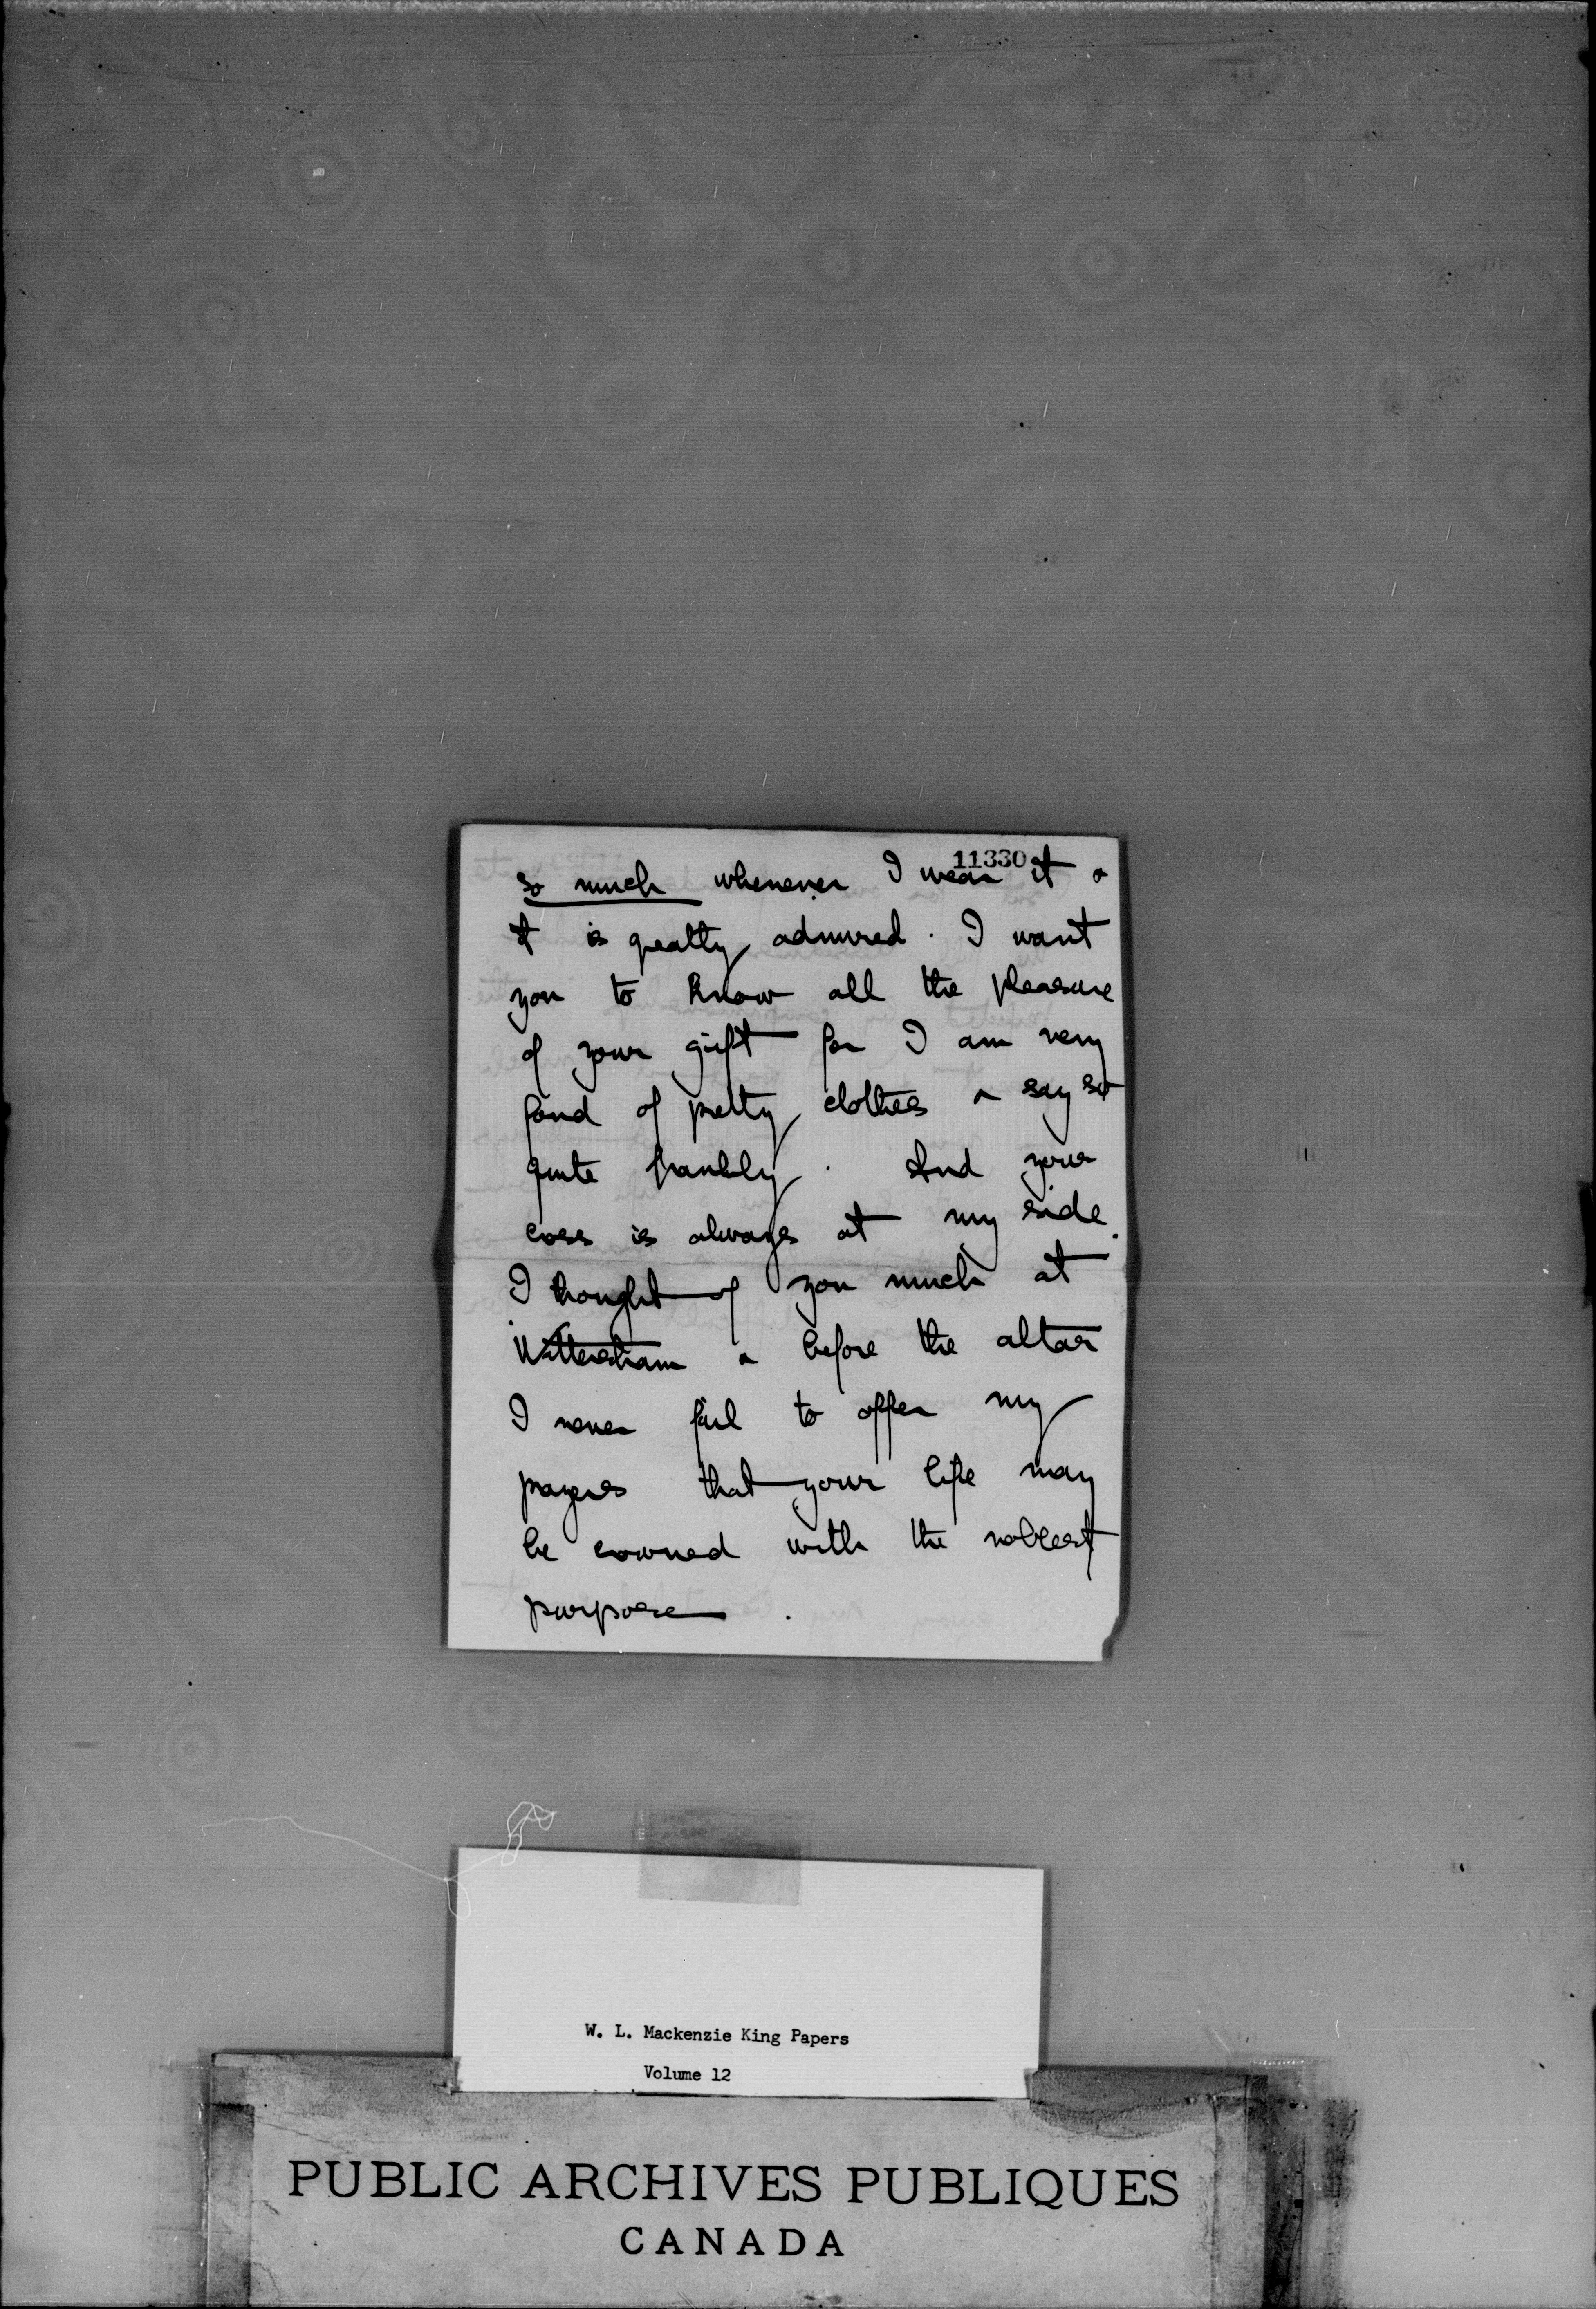 11330
so much whenever I wear it &
it is greatly admired. I want
you to know all the pleasure
of your gift for I am very
fond of pretty clothes & say so
quite frankly. And your
cross is always at my side.
I thought of you much at
Wittersham & before the altar
I never fail to offer my
prayers that your life may
be crowned with the noblest
purpose.
W. L. Mackenzie King Papers
Volume 12
PUBLIC ARCHIVES PUBLIQUES
CANADA